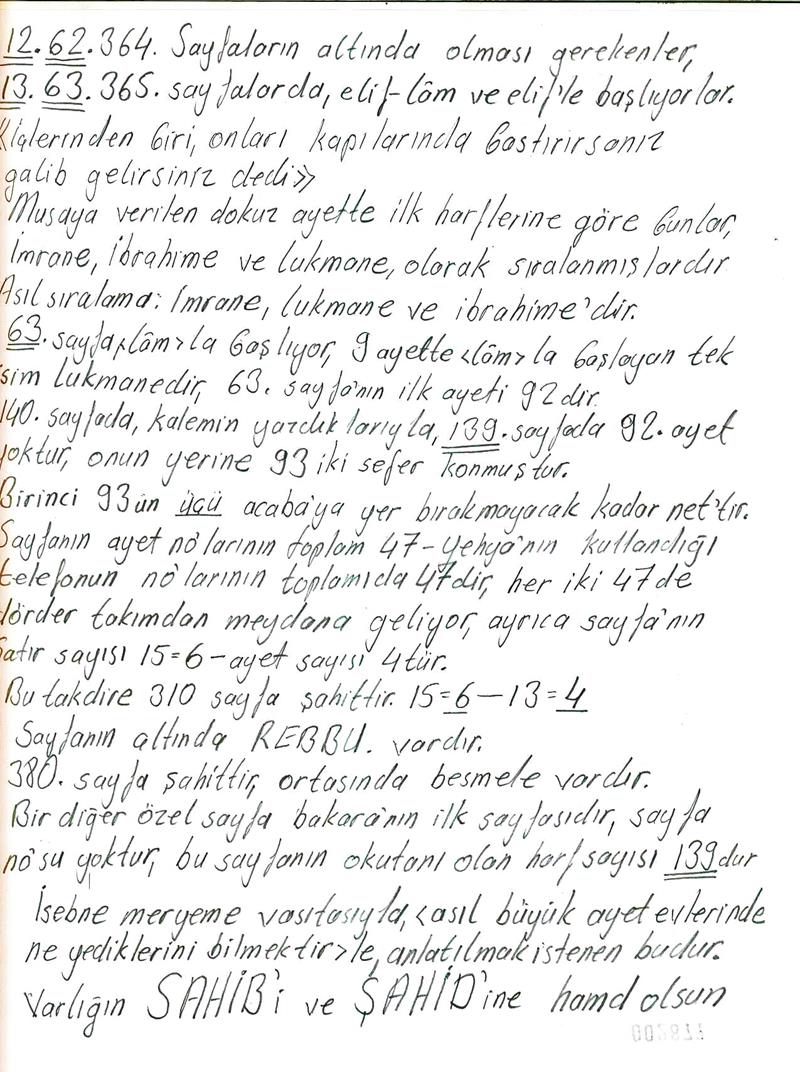 12.62.364. Sayfaların altında olması gerekenler,
13.63.365. sayfalarda, elif-lâm ve elif'le başlıyorlar.
kişlerinden biri, onları kapılarında bastırırsanız
galib gelirsiniz dedi»
Musaya verilen dokuz ayette ilk harflerine göre bunlar,
İmrane, İbrahime ve lukmane, olarak sıralanmışlardır
Asıl sıralama: İmrane, lukmane ve ibrahime'dir.
63. sayfa<lâm>la başlıyor, 9 ayette <lâm>la başlayan tek
isim lukmanedir, 63. sayfa'nın ilk ayeti 92dir.
140. sayfada, kalemin yazdıklarıyla, 139. sayfada 92. ayet
yoktur, onun yerine 93 iki sefer konmuştur.
Birinci 93ün üçü acaba'ya yer bırakmayacak kadar net'tir.
Sayfanın ayet no'larının toplam 47-Yehya'nın kullandığı
telefonun no'larının toplamıda 47dir, her iki 47 de
dörder takımdan meydana geliyor, ayrıca sayfa'nın
satır sayısı 15=6-ayet sayısı 4tür.
Bu takdire 310 sayfa şahittir. 15=6-13=4
Sayfanın altında REBBU. vardır.
380. sayfa şahittir, ortasında besmele vardır.
Bir diğer özel sayfa bakara'nın ilk sayfasıdır, sayfa
no'su yoktur, bu sayfanın okutanı olan harf sayısı 139dur
İsebne meryeme vasıtasıyla, <asıl büyük ayet evlerinde
ne yediklerini bilmektir>le, anlatılmak istenen budur.
Varlığın SAHİB'i ve ŞAHİD'ine hamd olsun